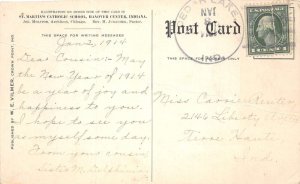 ILLUSTRATION ON OTHER SIDE OF THIS CARD IS
ST. MARTIN'S CATHOLIC SCHOOL, HANOVER CENTER, INDIANA.
THIS SPACE FOR WRITING MESSAGES
Jan 2, 1914
Dear Cousin:- May
the New Year of 1914
be a year of joy and
happiness to you.
I hope to see you
myself some day.
From your cousin
Sister M. Delphina
PUBLISHED BY W. E. VILMER, CROWN POINT, IND.
Post Card
THIS SPACE FOR ADDRESS ONLY
JAN
IND.
1 CENT 1
Miss Carrie
2144 Liberty
Terre Haute
Ind.